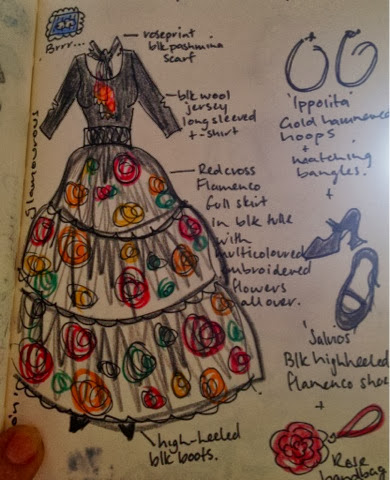 Brrr...
roseprint
blk pashmina
scarf
blk wool
jersey
longsleeved
t-shirt
glamourous
Redcross
Flamenco
full skirt
in blk tulle
with
multicoloured
embroidered
flowers
all over.
high-heeled
blk boots.
'Ippolita'
Gold hammered
hoops
+
matching
bangles.
+
Blk highheeled
Flamenco shoe
+
Rose
handbag